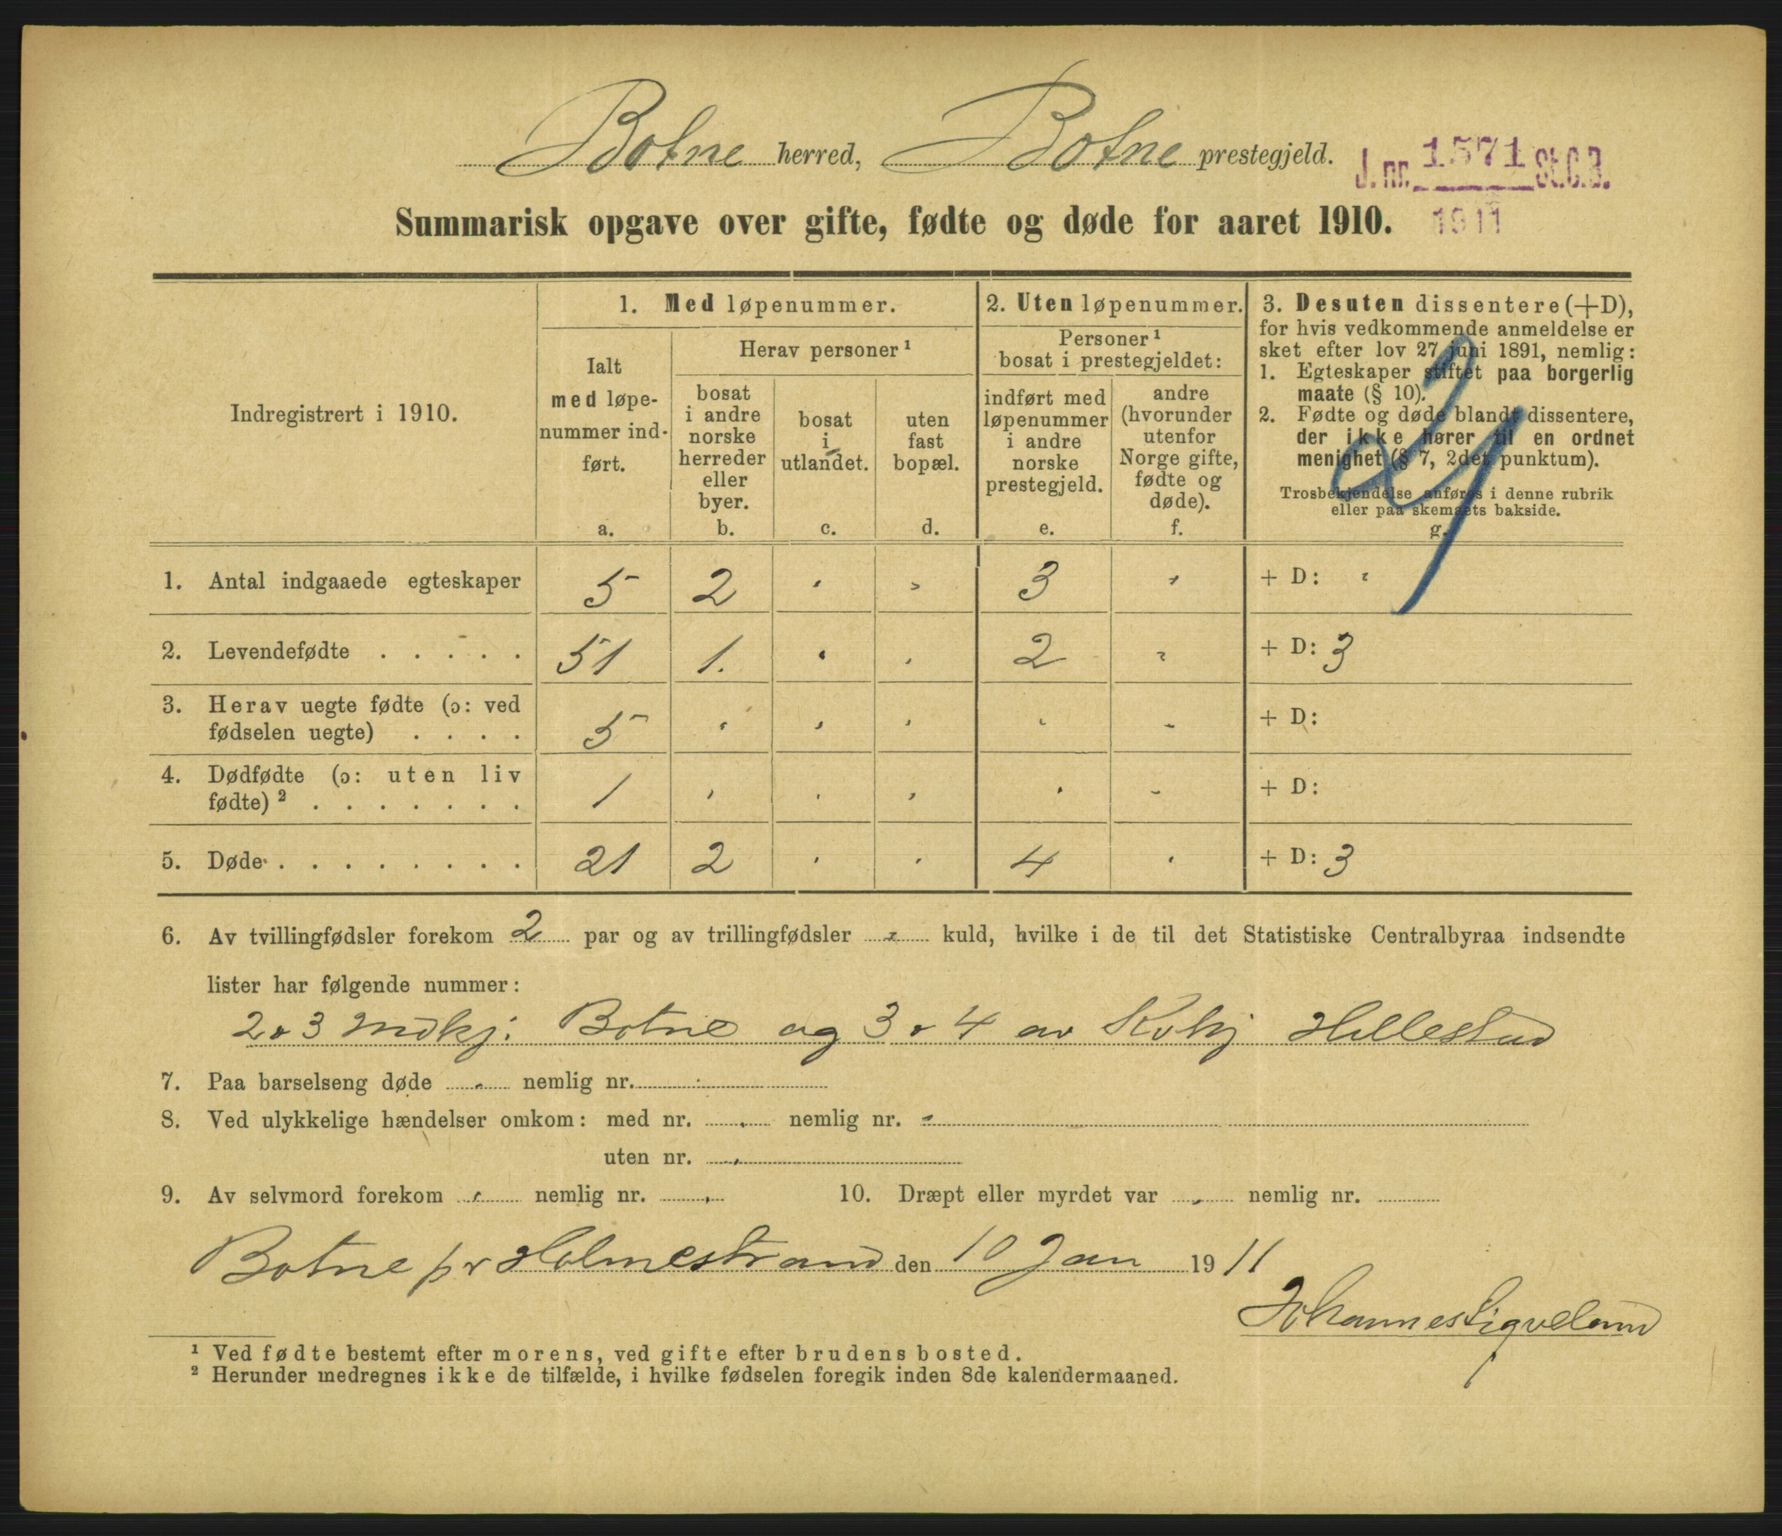 Botne herred, Botne prestegjeld.
J. nr. 1571 St.C.B.
1911
Summarisk opgave over gifte, fødte og døde for aaret 1910.
Indregistrert i 1910.
1. Med løpenummer.
Ialt
med løpe-
nummer ind-
ført.
a.
Herav personer ¹
bosat
i andre
norske
herreder
eller
byer.
b.
bosat
i
utlandet.
c.
uten
fast
bopæl.
d.
2. Uten løpenummer.
Personer ¹
bosat i prestegjeldet:
indført med
løpenummer
i andre
norske
prestegjeld.
e.
andre
(hvorunder
utenfor
Norge gifte,
fødte og
døde).
f.
3. Desuten dissentere (+D),
for hvis vedkommende anmeldelse er
sket efter lov 27 juni 1891, nemlig:
1. Egteskaper stiftet paa borgerlig
maate (§ 10).
2. Fødte og døde blandt dissentere,
der ikke hører til en ordnet
menighet (§ 7, 2det punktum).
Trosbekjendelse anføres i denne rubrik
eller paa skemaets bakside.
g.
1. Antal indgaaede egteskaper 5 2 " " 3 " + D: "
2. Levendefødte . . . . . 51 1. " " 2 " + D: 3
3. Herav uegte fødte (ɔ: ved
fødselen uegte) . . . . 5 " " " " " + D:
4. Dødfødte (ɔ: uten liv
fødte) ² . . . . . . . 1 " " " " " + D:
5. Døde . . . . . . . . 21 2 " " 4 " + D: 3
6. Av tvillingfødsler forekom 2 par og av trillingfødsler " kuld, hvilke i de til det Statistiske Centralbyraa indsendte
lister har følgende nummer:
2 & 3 Mdkj. Botne og 3 & 4 av Kvkj Hillestad
7. Paa barselseng døde " nemlig nr.
8. Ved ulykkelige hændelser omkom: med nr. " nemlig nr. "
uten nr. "
9. Av selvmord forekom " nemlig nr. " 10. Dræpt eller myrdet var " nemlig nr.
Botne pr Holmestrand den 10 Jan 1911
Johannes Sigveland
¹ Ved fødte bestemt efter morens, ved gifte efter brudens bosted.
² Herunder medregnes ikke de tilfælde, i hvilke fødselen foregik inden 8de kalendermaaned.